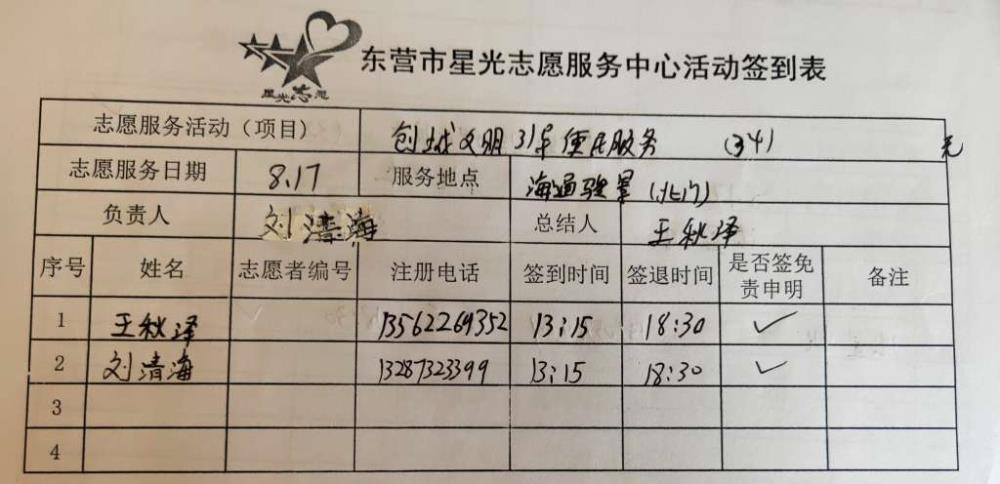 东营市星光志愿服务中心活动签到表
星光志愿
志愿服务活动（项目） 创城文明引车便民服务 (341)
志愿服务日期 8.17 服务地点 海通骏景(北门)
负责人 刘清海 总结人 王秋泽
序号 姓名 志愿者编号 注册电话 签到时间 签退时间 是否签免责申明 备注
1 王秋泽 13562269352 13:15 18:30 ✓
2 刘清海 13287323399 13:15 18:30 ✓
3
4